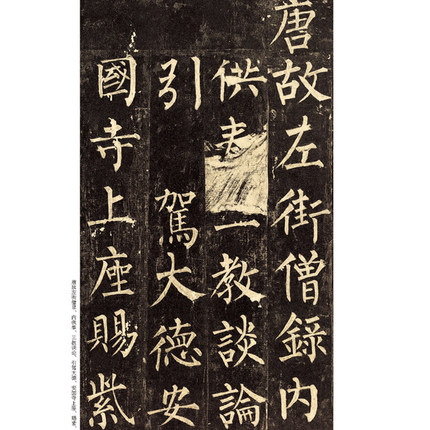 唐故左街僧錄內
供奉三教談論
引駕大德安
國寺上座賜紫
唐故左街僧录、内供奉、三教谈论、引驾大德、安国寺上座、赐紫